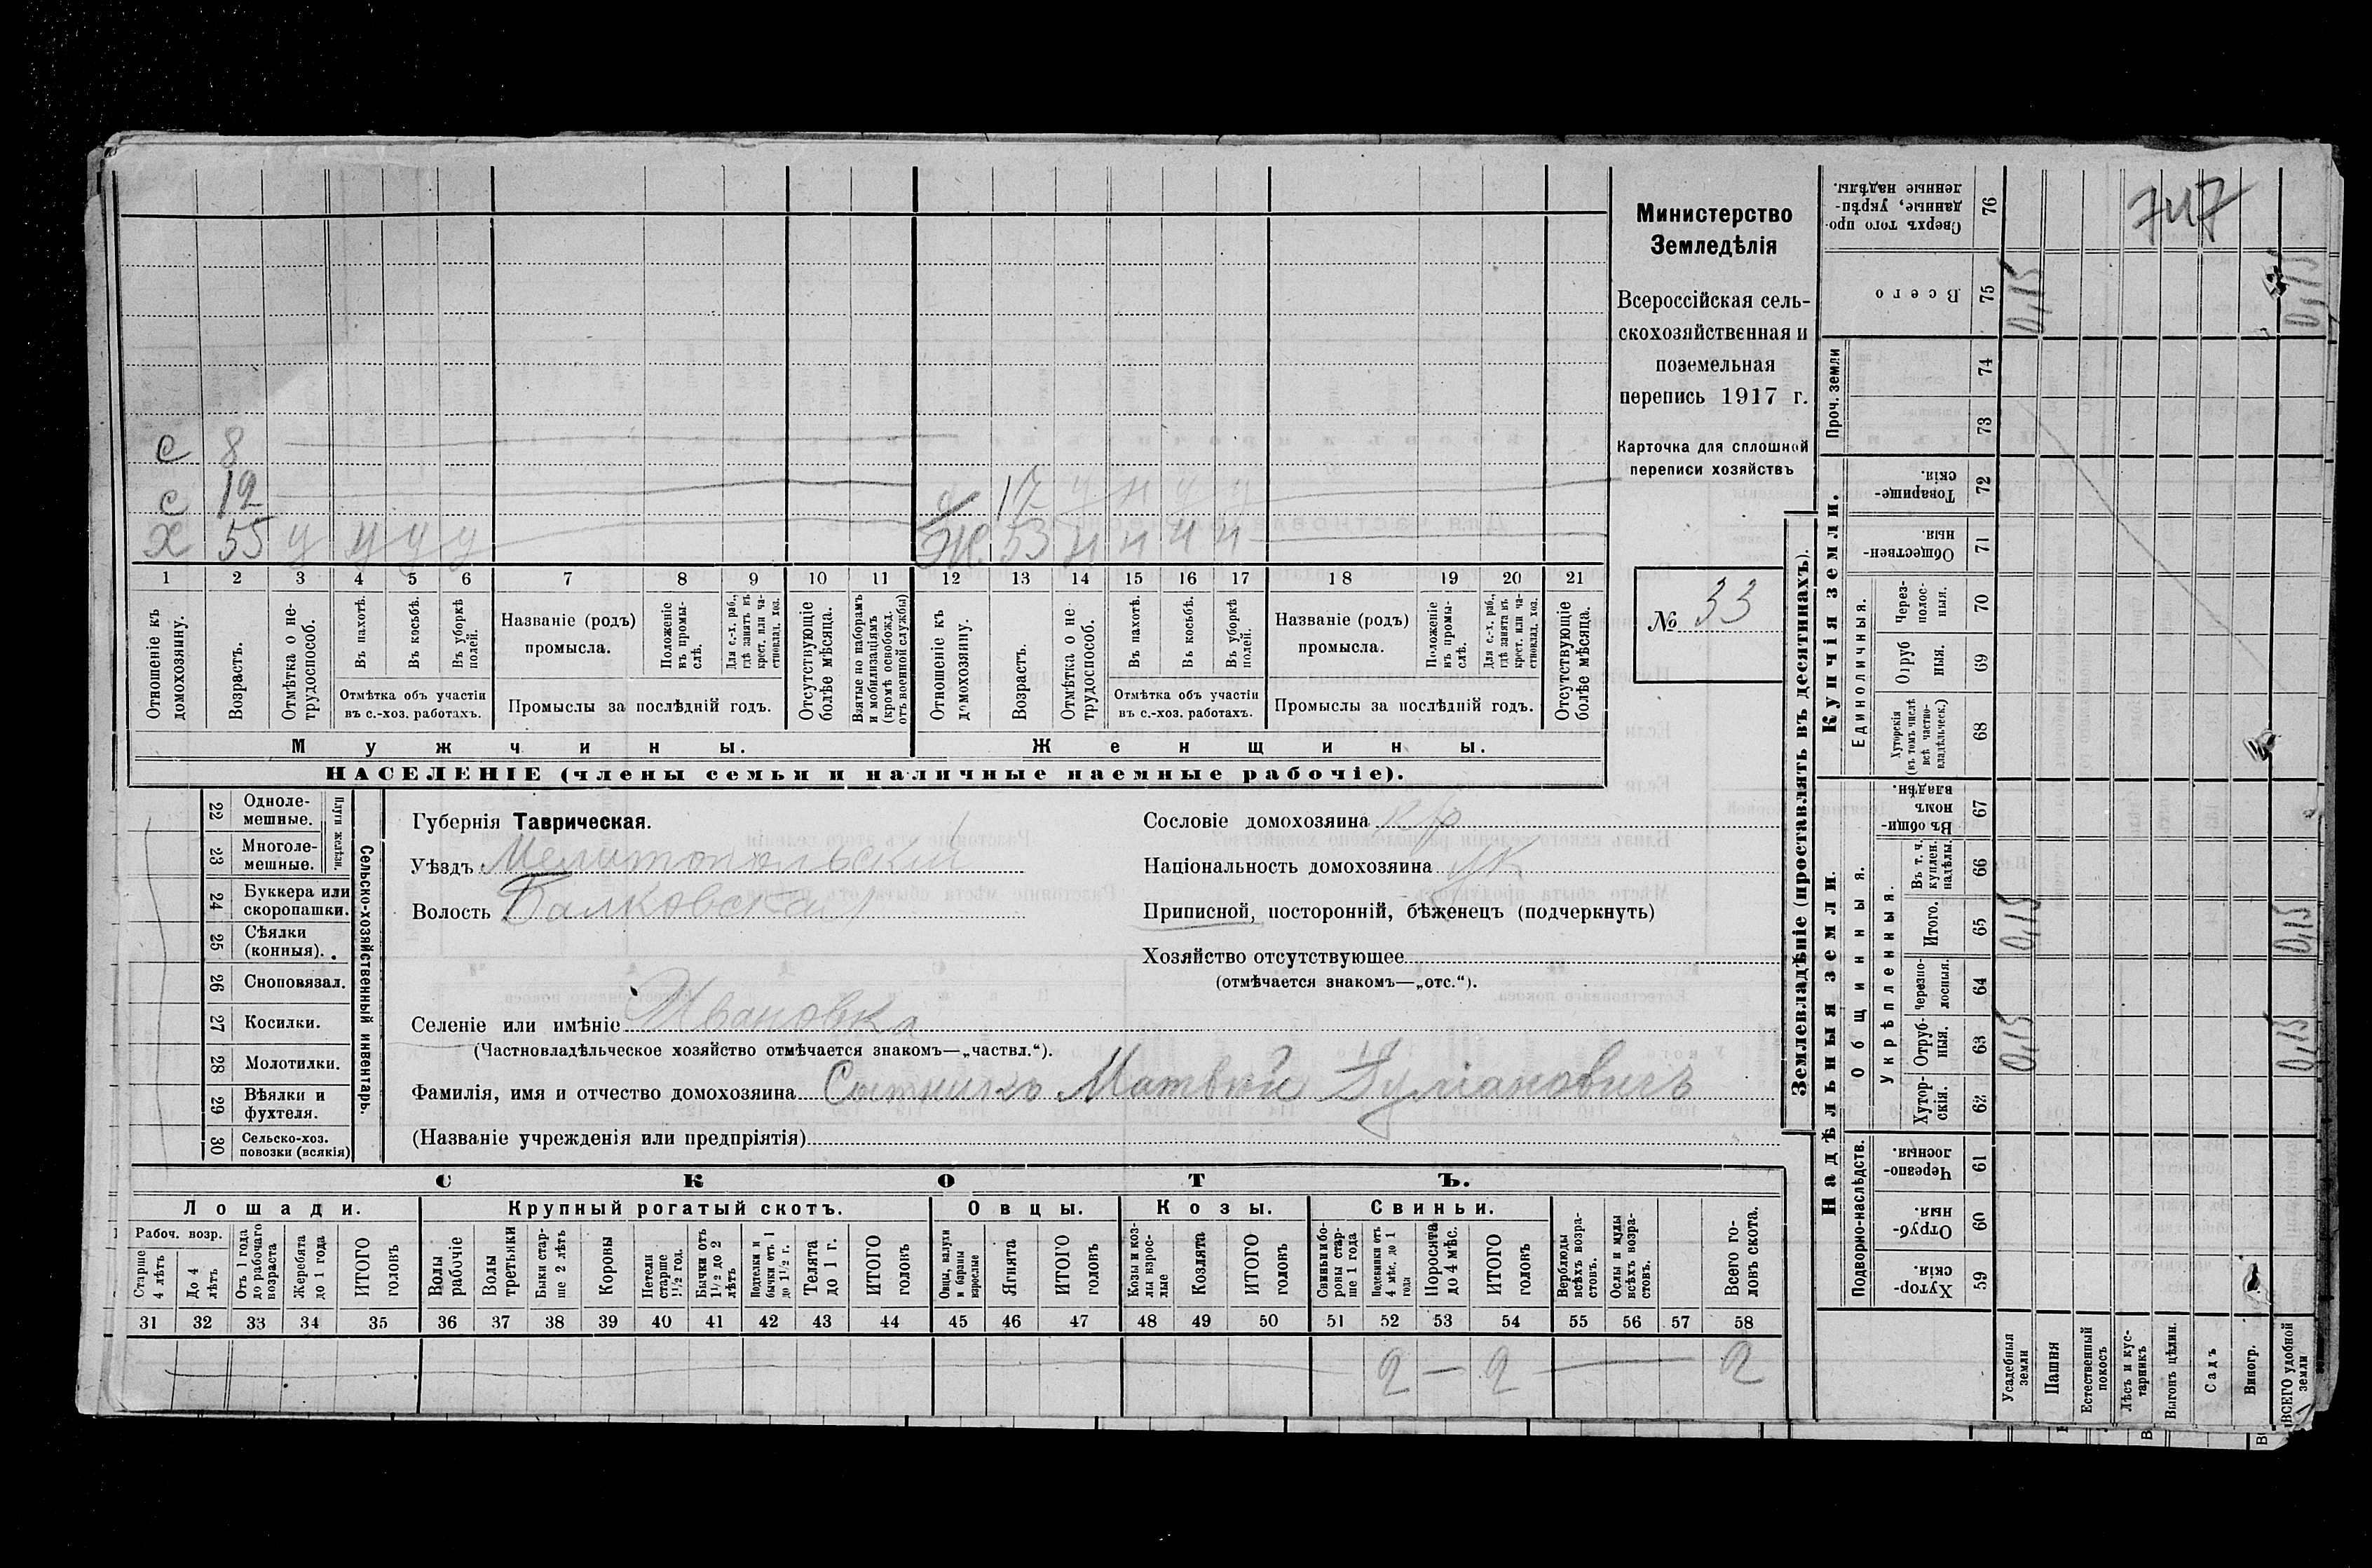 747
Министерство
Земледѣлія
Всероссійская сель-
скохозяйственная и
поземельная
перепись 1917 г.
Карточка для сплошной
переписи хозяйствъ
№ 33
с 8
с 12
с 17 ч н ч ч
Х 55 У У У У
Ж. 53 Н Н Ч Н
1 2 3 4 5 6 7 8 9 10 11 12 13 14 15 16 17 18 19 20 21
Отношеніе къ домохозяину.
Возрастъ.
Отмѣтка о не-трудоспособ.
Въ пахотѣ.
Въ косьбѣ.
Въ уборкѣ полей.
Отмѣтка объ участіи
въ с.-хоз. работахъ.
Названіе (родъ)
промысла.
Положеніе въ промы-слѣ.
Для с.-х. раб., гдѣ занятъ въ крест. или ча-стновлад. хоз.
Промыслы за послѣдній годъ.
Отсутствующіе болѣе мѣсяца.
Взятые по наборамъ и мобилизаціямъ (кромѣ освобожд. отъ военной службы)
Отношеніе къ домохозяину.
Возрастъ.
Отмѣтка о не трудоспособ.
Въ пахотѣ.
Въ косьбѣ.
Въ уборкѣ полей.
Отмѣтка объ участіи
въ с.-хоз. работахъ.
Названіе (родъ)
промысла.
Положеніе въ промы-слѣ.
Для с.-х. раб., гдѣ занята въ крест. или ча-стновлад. хоз.
Промыслы за послѣдній годъ.
Отсутствующіе болѣе мѣсяца.
Мужчины.
Женщины.
НАСЕЛЕНІЕ (члены семьи и наличные наемные рабочіе).
22 Однолемешные.
23 Многолемешные.
Плуги желѣзн.
24 Буккера или скоропашки.
25 Сѣялки (конныя).
26 Сноповязал.
27 Косилки.
28 Молотилки.
29 Вѣялки и фухтеля.
30 Сельско-хоз. повозки (всякія)
Сельско-хозяйственный инвентарь.
Губернія Таврическая.
Уѣздъ Мелитопольскій
Волость Балковская
Селеніе или имѣніе Ивановка
(Частновладѣльческое хозяйство отмѣчается знакомъ—„частвл.“).
Фамилія, имя и отчество домохозяина Сытникъ Матвѣй
(Названіе учрежденія или предпріятія)
Сословіе домохозяина кр
Національность домохозяина
Приписной, посторонній, бѣженецъ (подчеркнуть)
Хозяйство отсутствующее
(отмѣчается знакомъ—„отс.“).
СКОТЪ.
Лошади.
Крупный рогатый скотъ.
Овцы.
Козы.
Свиньи.
Рабоч. возр.
Старше 4 лѣтъ
До 4 лѣтъ
Отъ 1 года до рабочаго возраста
Жеребята до 1 года
ИТОГО головъ
Волы рабочіе
Волы третьяки
Быки стар-ше 2 лѣтъ
Коровы
Нетели старше 1½ год.
Бычки отъ 1½ до 2 лѣтъ
Подтелки и бычки отъ 1 до 1½ г.
Телята до 1 г.
ИТОГО головъ
Овцы, валухи и бараны взрослые
Ягнята
ИТОГО головъ
Козы и коз-лы взрос-лые
Козлята
ИТОГО головъ
Свиньи бо-ровы стар-ше 1 года
Подсвинки отъ 4 мѣс. до 1 года
Поросята до 4 мѣс.
ИТОГО головъ
Верблюды всѣхъ возра-стовъ.
Ослы и мулы всѣхъ возра-стовъ.
Всего го-ловъ скота.
31 32 33 34 35 36 37 38 39 40 41 42 43 44 45 46 47 48 49 50 51 52 53 54 55 56 57 58
2 — 2 — 2
Землевладѣніе (проставлять въ десятинахъ).
Купчія земли.
Надѣльныя земли.
Сверхъ того про-данные, укрѣп-ленные надѣлы. 76
Всего 75 0,15 0,15
Проч. земли
74
73
Товарище-скія. 72
Обществен-ныя. 71
Единоличныя.
Через-полос-ныя. 70
Отруб ныя. 69
Хуторскія (въ томъ числѣ всѣ частно-владѣльческ.) 68
Общинныя.
Въ общи-номъ владѣн. 67
Укрѣпленныя.
Въ т. ч. куплен. надѣлы. 66
Итого. 65 0,15 0,15
Черезпо-лосныя. 64
Отруб-ныя. 63 0,15 0,15
Хутор-скія. 62
Подворно-наслѣдств.
Черезпо-лосныя. 61
Отруб-ныя. 60
Хутор-скія. 59
Усадебныя земли
Пашня
Естественный покосъ
Лѣсъ и кус-тарникъ
Выгонъ цѣлин.
Садъ
Виногр.
ВСЕГО удобной земли